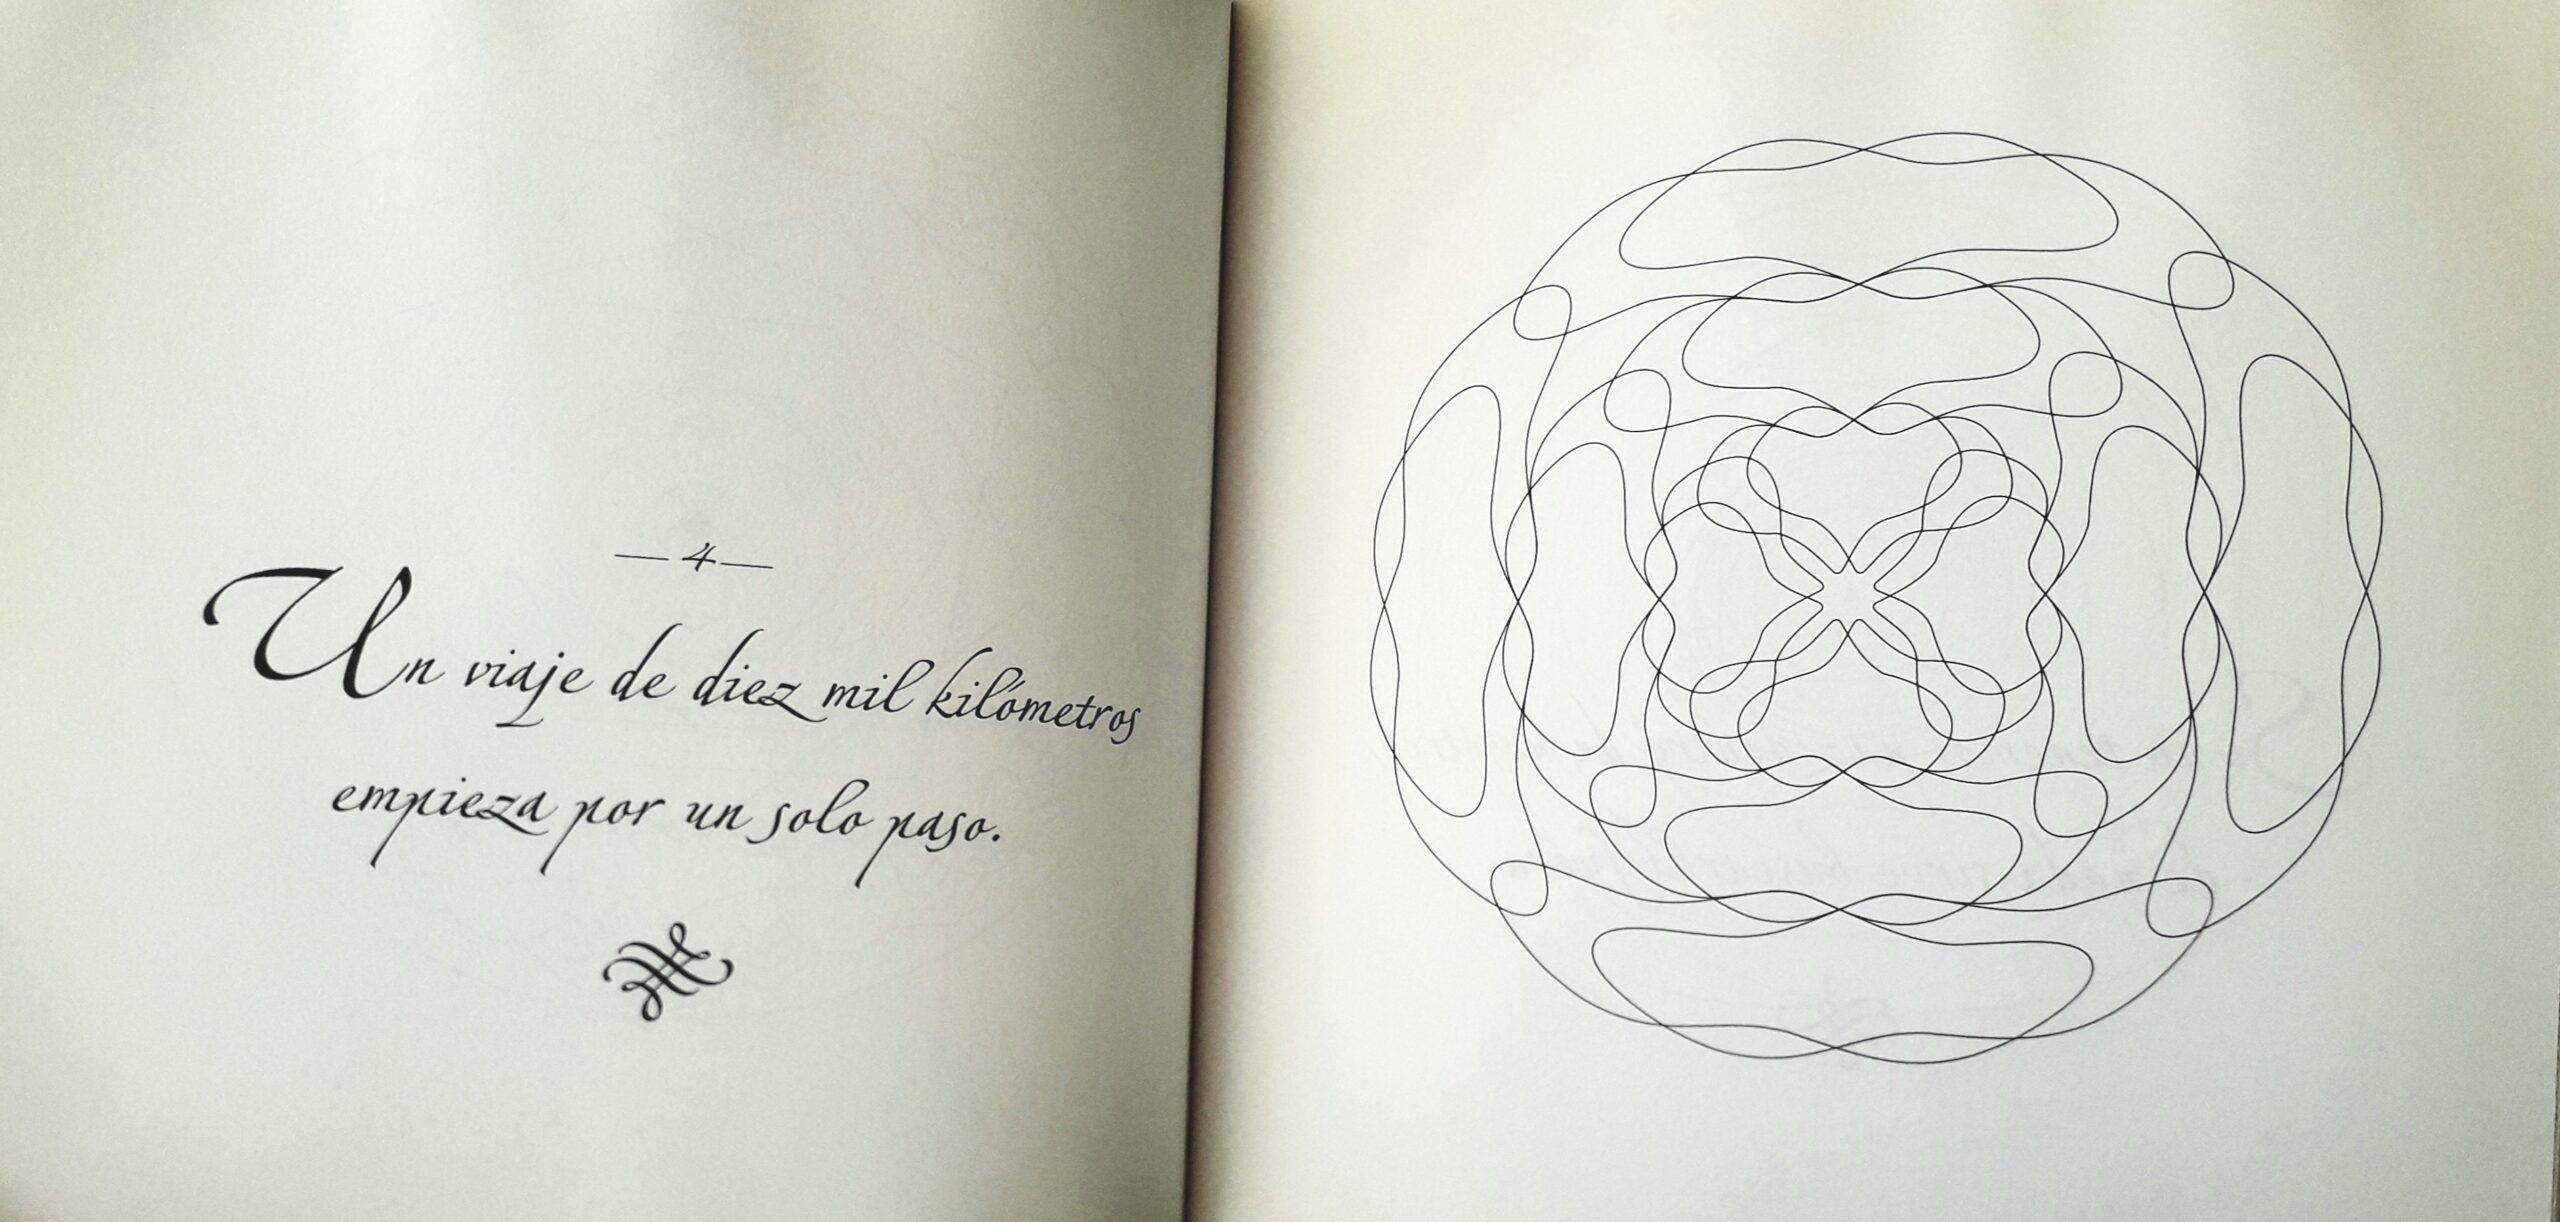 —4—
Un viaje de diez mil kilómetros
empieza por un solo paso.